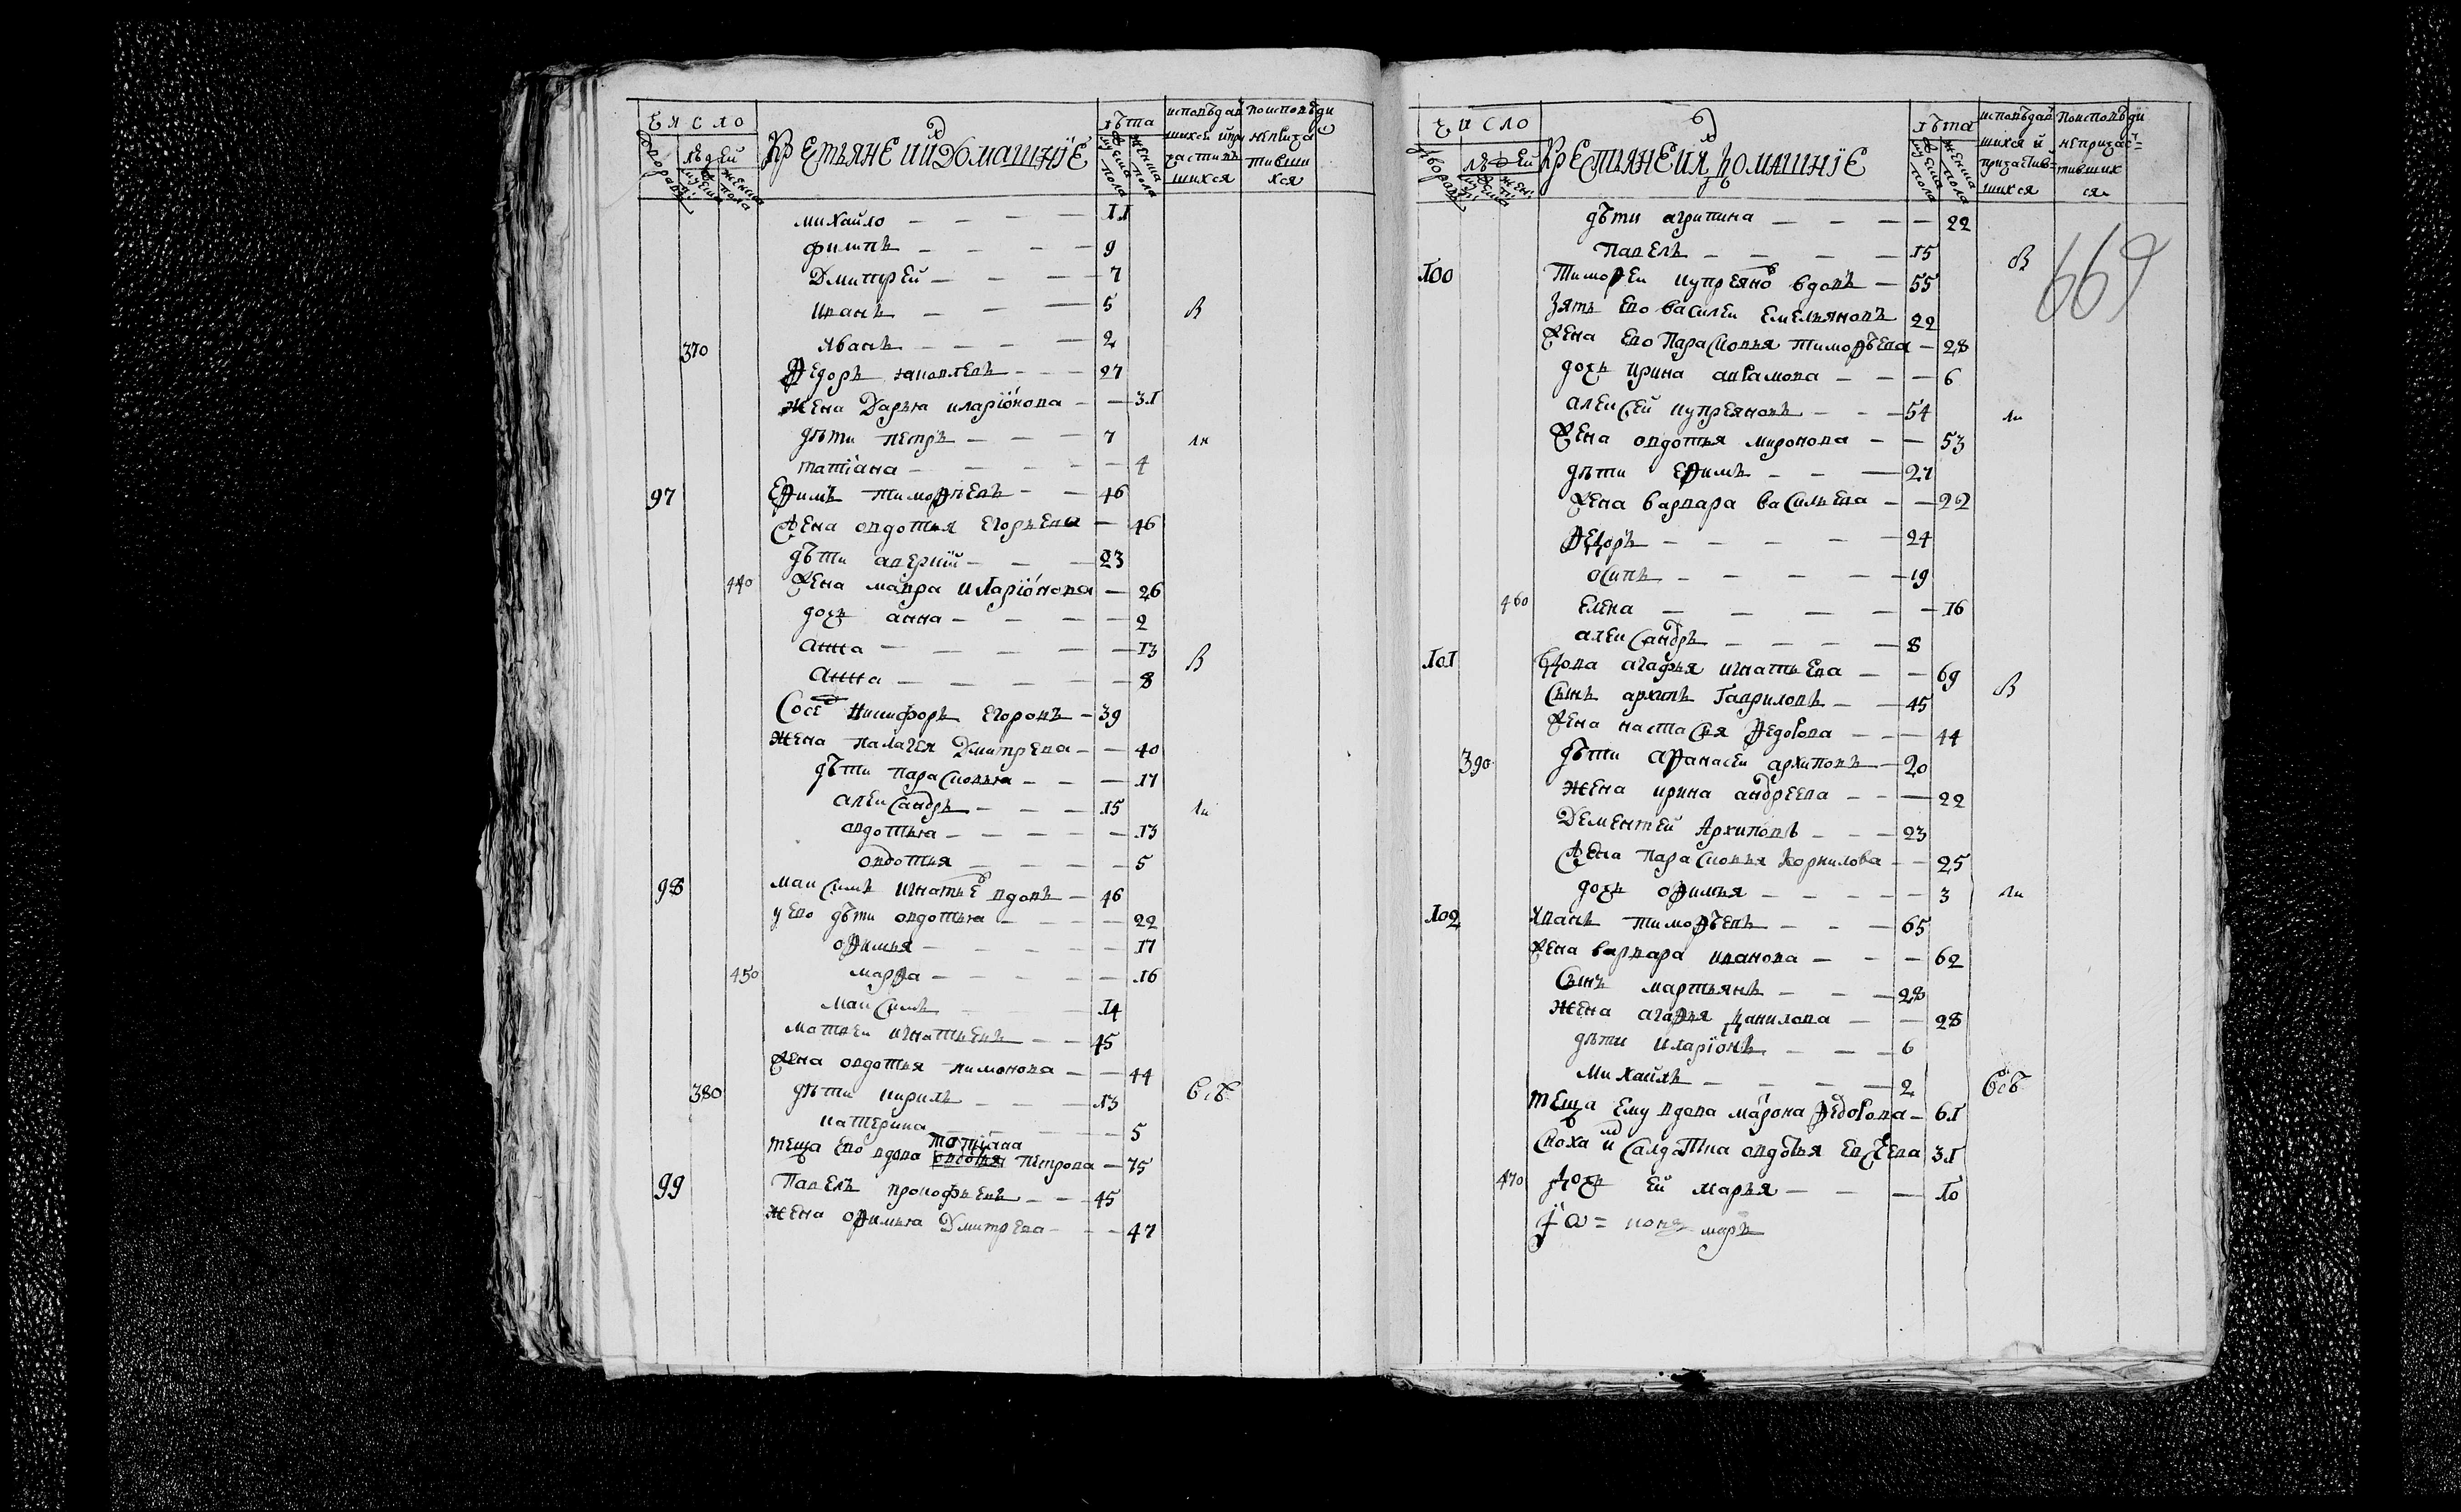 Число
Крестьяне и их домашнїе
лѣта
дворовъ
людей
мужеска пола
женска пола
мужеска пола
женска пола
исповѣдав
шихся и при
частив
шихся
по исповѣди
не прича
стивши
хся
михайло — — — — 11
филипъ — — — — 9
Дмитрей — — — 7
иванъ — — — 5 в
370 иванъ — — — — 2
Федоръ яковлевъ — — — 27
жена Дарья иларїонова — — 31
дѣти петръ — — — 7 ли
татїана — — — — 4
97 Ефимъ тимофѣевъ — — 46
жена овдотья егорьева — 46
дѣти аверкий — — — 23
440 жена мавра иларїонова — 26
дочь анна — — — — 2
анна — — — — — 13 в
анна — — — — — 8
Сосед никифоръ егоровъ — 39
жена палагея Дмитрева — — 40
дѣти парасковья — — — 17
александръ — — — 15 ли
овдотья — — — — 13
овдотья — — — 5
98 максимъ игнатьев вдовъ — 46
у ево дѣти овдотья — — — 22
офимья — — — — 17
450 марфа — — — — 16
максимъ — — 14
матвеи игнатьевъ — — 45
жена овдотья пимонова — — 44
380 дѣти кирилъ — — — 13 всѣ
катерина — — — 5
татїана
теща ево вдова овдотья петрова — 75
99 Павелъ прокофьевъ — — 45
жена офимья Дмитрева — — 47
Число
Крестьяне и их домашнїе
лѣта
дворовъ
людей
мужеска
женс
мужеска пола
женска пола
исповѣдав
шихся и
причастив=
шихся
по исповѣди
не причас=
тивших
ся
дѣти агрипина — — — — 22
Павелъ — — — — 15 в
669
100 Тимофеи купреянов вдовъ — 55
зять ево василеи емельяновъ 22
жена ево парасковья тимофѣева — 28
дочь ирина авъамова — — — 6
алексей купреяновъ — — — 54 ли
жена овдотья миронова — — 53
дѣти ефимъ — — — 27
жена варвара васильева — — 22
Федоръ — — — — — 24
осипъ — — — — 19
460 елена — — — — — 16
александръ — — — — 8
101 вдова агафья игнатьева — — 69
сынъ архипъ гавриловъ — — 45 в
жена настасья федорова — — — 44
390 дѣти афанасеи архиповъ — 20
жена ирина андреева — — — 22
Дементей Архиповъ — — — 23
жена парасковья корнилова — — 25
дочь офимья — — — — — 3 ли
102 иванъ тимофѣевъ — — — 65
жена варвара иванова — — — 62
сынъ мартьянъ — — — 28
жена агафья данилова — — 28
дѣти иларїонъ — — — 6
михайлъ — — — — 2 всѣ
теща ему вдова марона федорова — 61
сноха и салдатка овдотья евсеева 31
470 дочь ей марья — — — 10